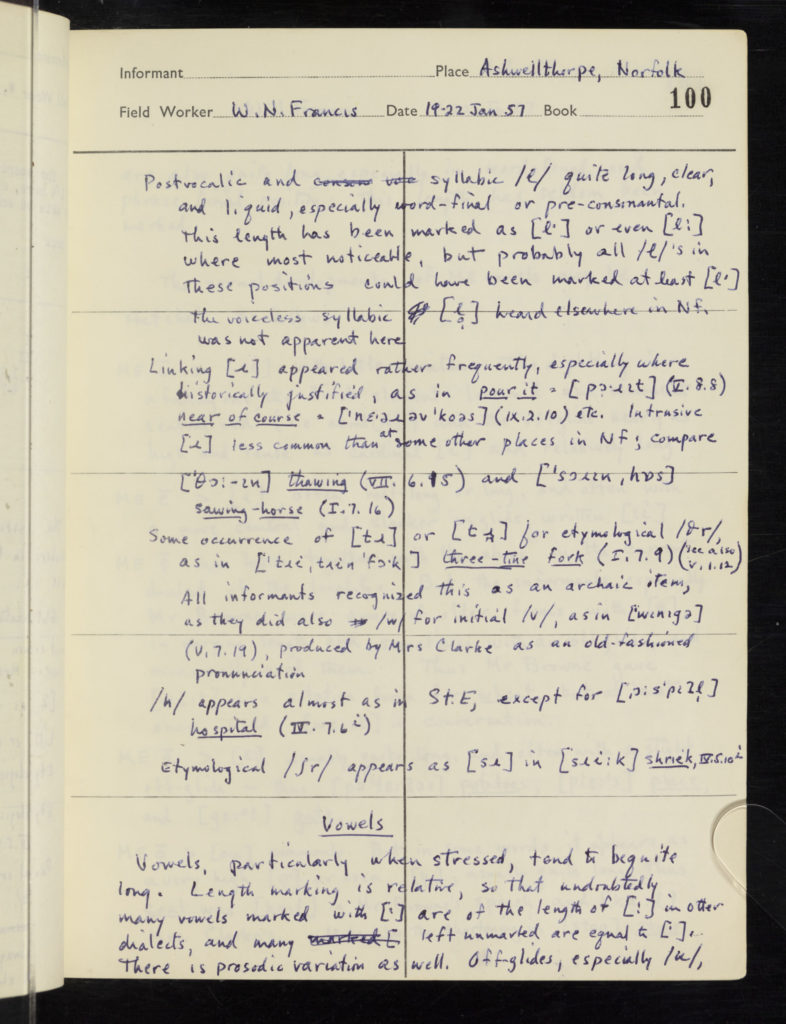 Informant Place Ashwellthorpe, Norfolk
Field Worker W.N. Francis Date 19-22 Jan 57 Book 100
Postvocalic and syllabic /l/ quite long, clear,
and liquid, especially word-final or pre-consonantal.
This length has been marked as [lˑ] or even [lː]
where most noticeable, but probably all /l/'s in
these positions could have been marked at least [lˑ]
The voiceless syllabic [l̥] heard elsewhere in Nf.
was not apparent here
Linking [ɹ] appeared rather frequently, especially where
historically justified, as in pour it = (V. 8.8)
near of course = (IX.2.10) etc. Intrusive
[ɹ] less common than at some other places in Nf; compare
['θɔː-ɪn] thawing (VII. 6.15) and ['sɔɹɪn,hɒs]
sawing-horse (I.7.16)
Some occurrence of [tɹ] or for etymological /θr/,
as in three-tine fork (I.7.9) (see also V.1.12)
All informants recognized this as an archaic item,
as they did also /w/ for initial /v/, as in ['wɪnɪgə]
(V.7.19), produced by Mrs Clarke as an old-fashioned
pronunciation
/h/ appears almost as in St.E, except for
hospital (IV. 7.6ⁱ)
Etymological /ʃr/ appears as [sɹ] in [sɹiːk] shriek, IV.5.10ⁱ
Vowels
Vowels, particularly when stressed, tend to be quite
long. Length marking is relative, so that undoubtedly
many vowels marked with [ˑ] are of the length of [ː] in other
dialects, and many marked [ left unmarked are equal to [ˑ].
There is prosodic variation as well. Off-glides, especially